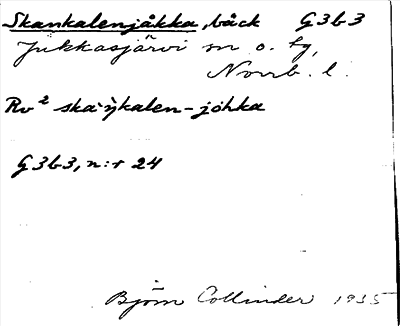 Skankalenjåkka, bäck G3b3
Jukkasjärvi sn o. tg,
Norrb. l.
Rv² skaŋ̀kalen-johka
G3b3, n:r 24
Björn Collinder 1935